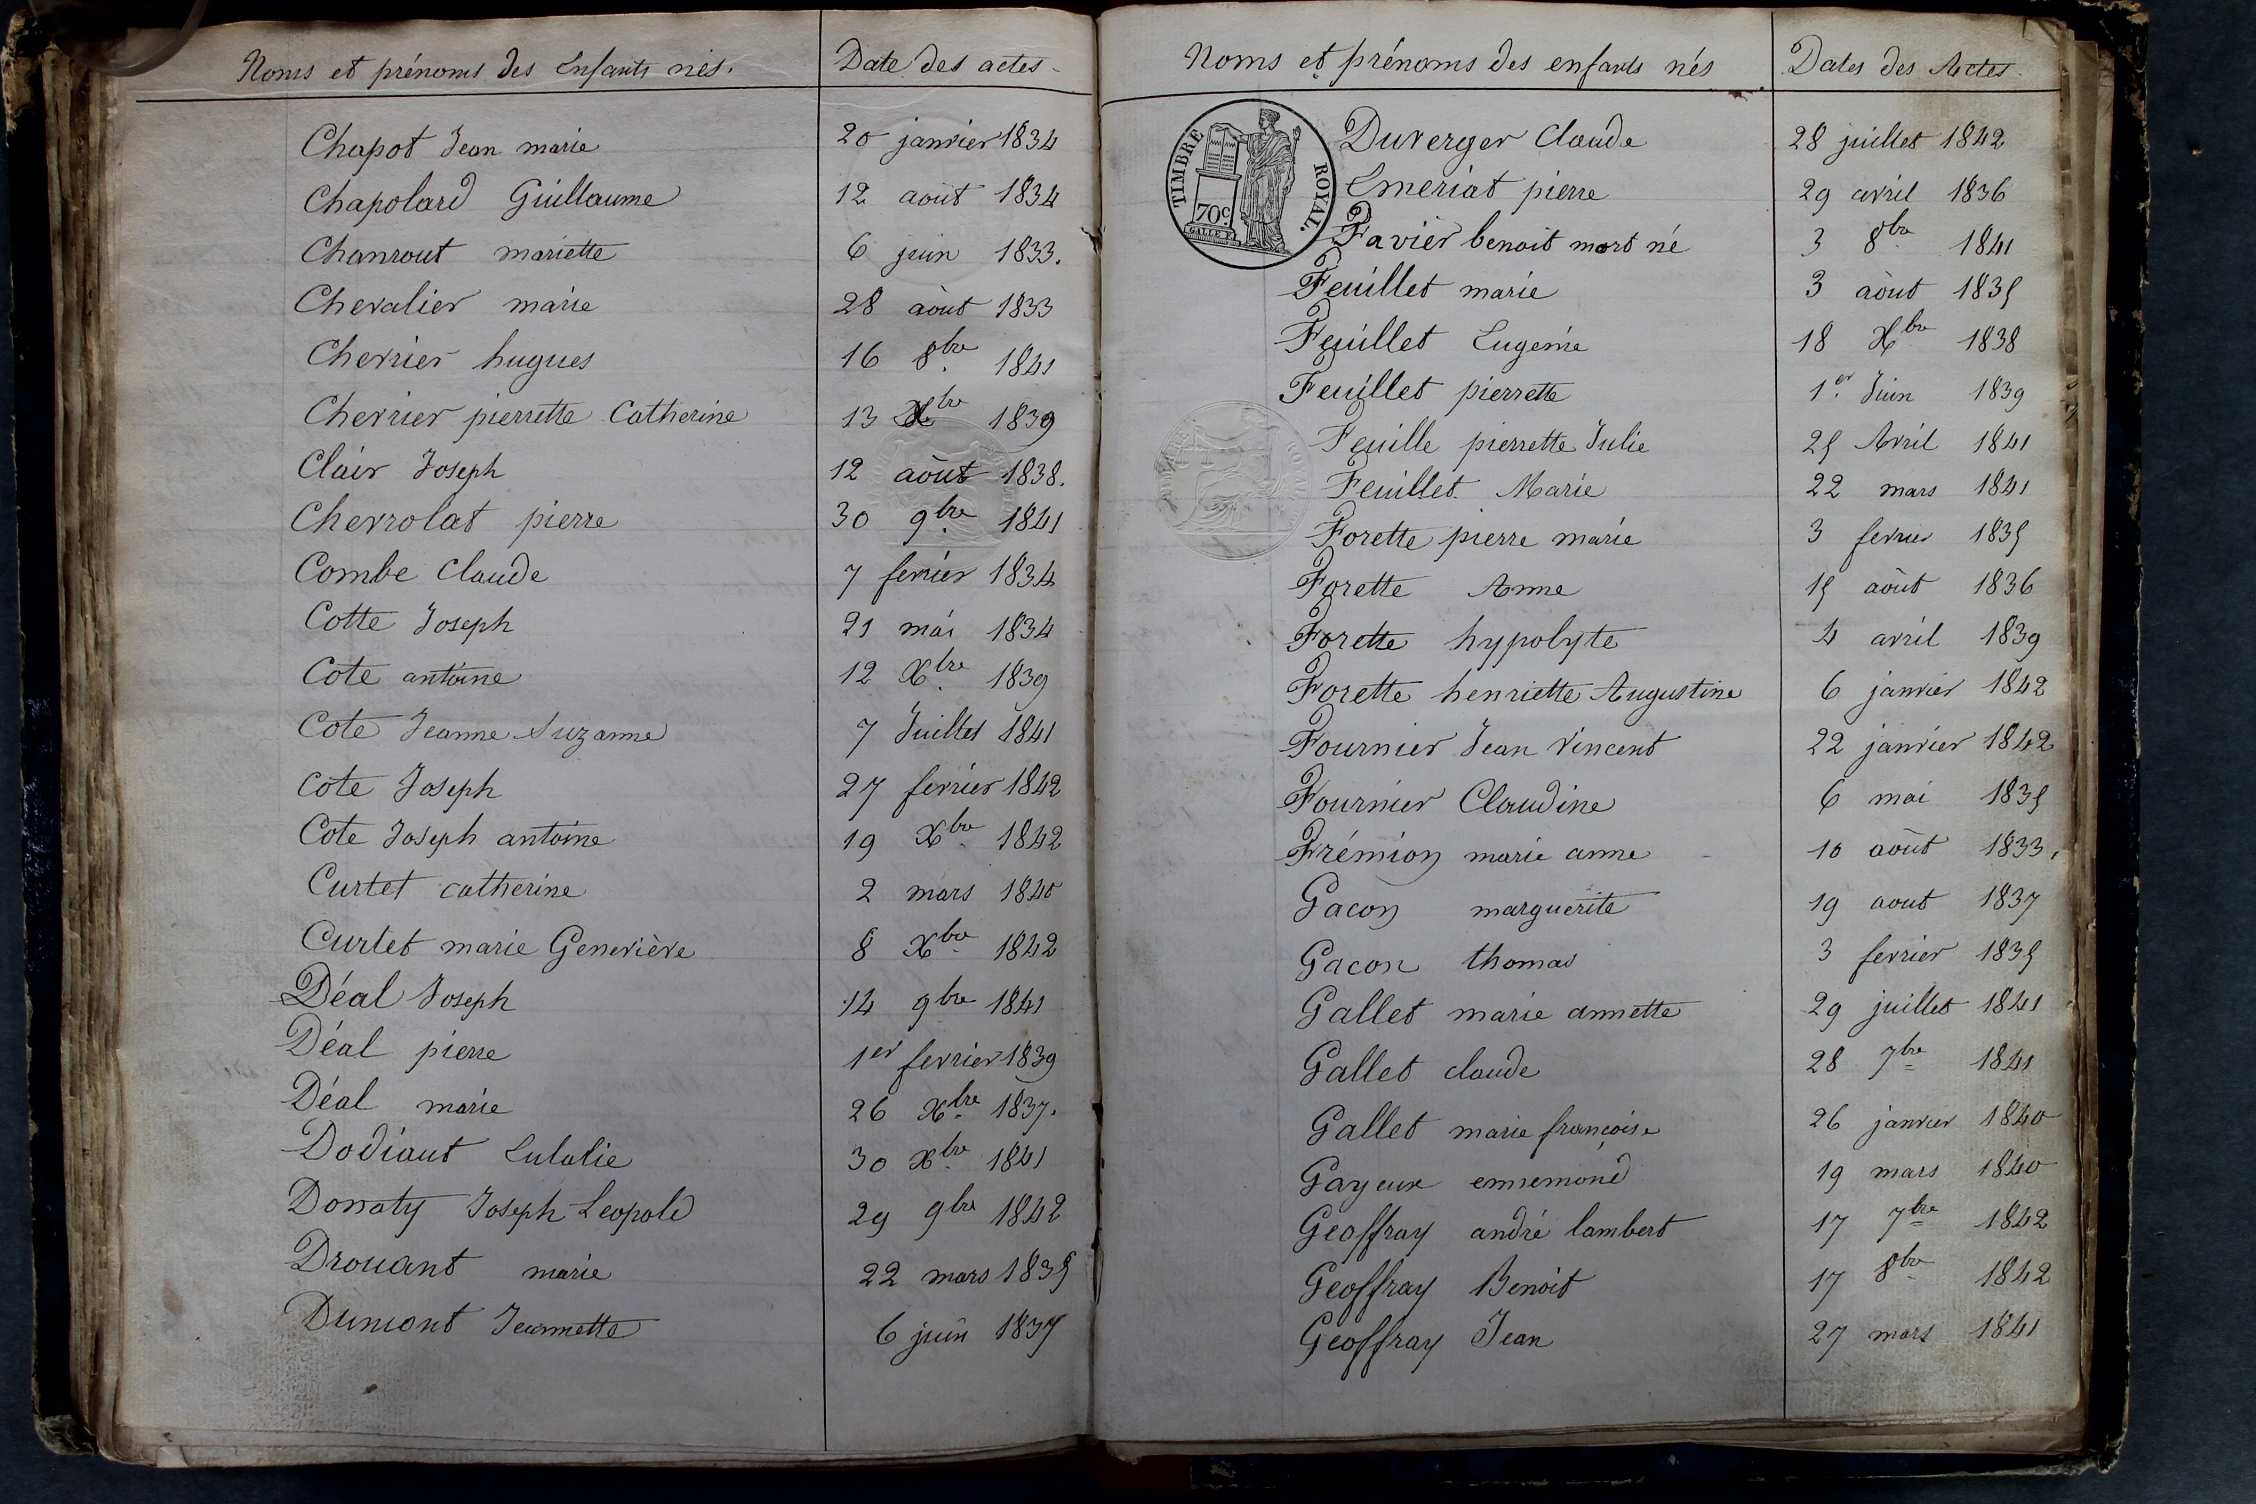 Noms et prénoms des Enfants nés.
Date des actes
Chapot Jean marie 20 janvier 1834
Chapolard Guillaume 12 août 1834
Chanrout mariette 6 juin 1833.
Chevalier marie 28 août 1833
Cherrier hugues 16 8bre 1841
Cherrier pierrette Catherine 13 Xbre 1839
Clair Joseph 12 août 1838.
Chevrolat pierre 30 9bre 1841
Combe Claude 7 fevrier 1834
Cotte Joseph 21 mai 1834
Cote antoine 12 Xbre 1839
Cote Jeanne Suzanne 7 Juillet 1841
Cote Joseph 27 fevrier 1842
Cote Joseph antoine 19 Xbre 1842
Curtet catherine 2 mars 1840
Curtet marie Geneviève 8 Xbre 1842
Déal Joseph 14 9bre 1841
Déal pierre 1er fevrier 1839
Déal marie 26 Xbre 1837.
Dodiaut Eulalie 30 Xbre 1841
Donaty Joseph Leopold 29 9bre 1842
Drouant marie 22 mars 1835
Dumont Jeannette 6 juin 1837
Noms et prénoms des enfants nés
Dates des Actes
TIMBRE ROYAL.
70c.
Duverger Claude 28 juillet 1842
Emeriat pierre 29 avril 1836
Favier benoit mort né 3 8bre 1841
Feuillet marie 3 août 1835
Feuillet Eugenie 18 Xbre 1838
Feuillet pierrette 1er Juin 1839
Feuille pierrette Julie 25 Avril 1841
Feuillet Marie 22 mars 1841
Forette pierre marie 3 fevrier 1835
Forette Anne 15 août 1836
Forette hypolyte 4 avril 1839
Forette henriette Augustine 6 janvier 1842
Fournier Jean Vincent 22 janvier 1842
Fournier Claudine 6 mai 1835
Frémion marie anne 10 août 1833.
Gacon marguerite 19 aout 1837
Gacon thomas 3 fevrier 1835
Gallet marie annette 29 juillet 1841
Gallet claude 28 7bre 1841
Gallet marie françoise 26 janvier 1840
Gayeux ennemond 19 mars 1840
Geoffray andré lambert 17 7bre 1842
Geoffray Benoit 17 8bre 1842
Geoffray Jean 27 mars 1841